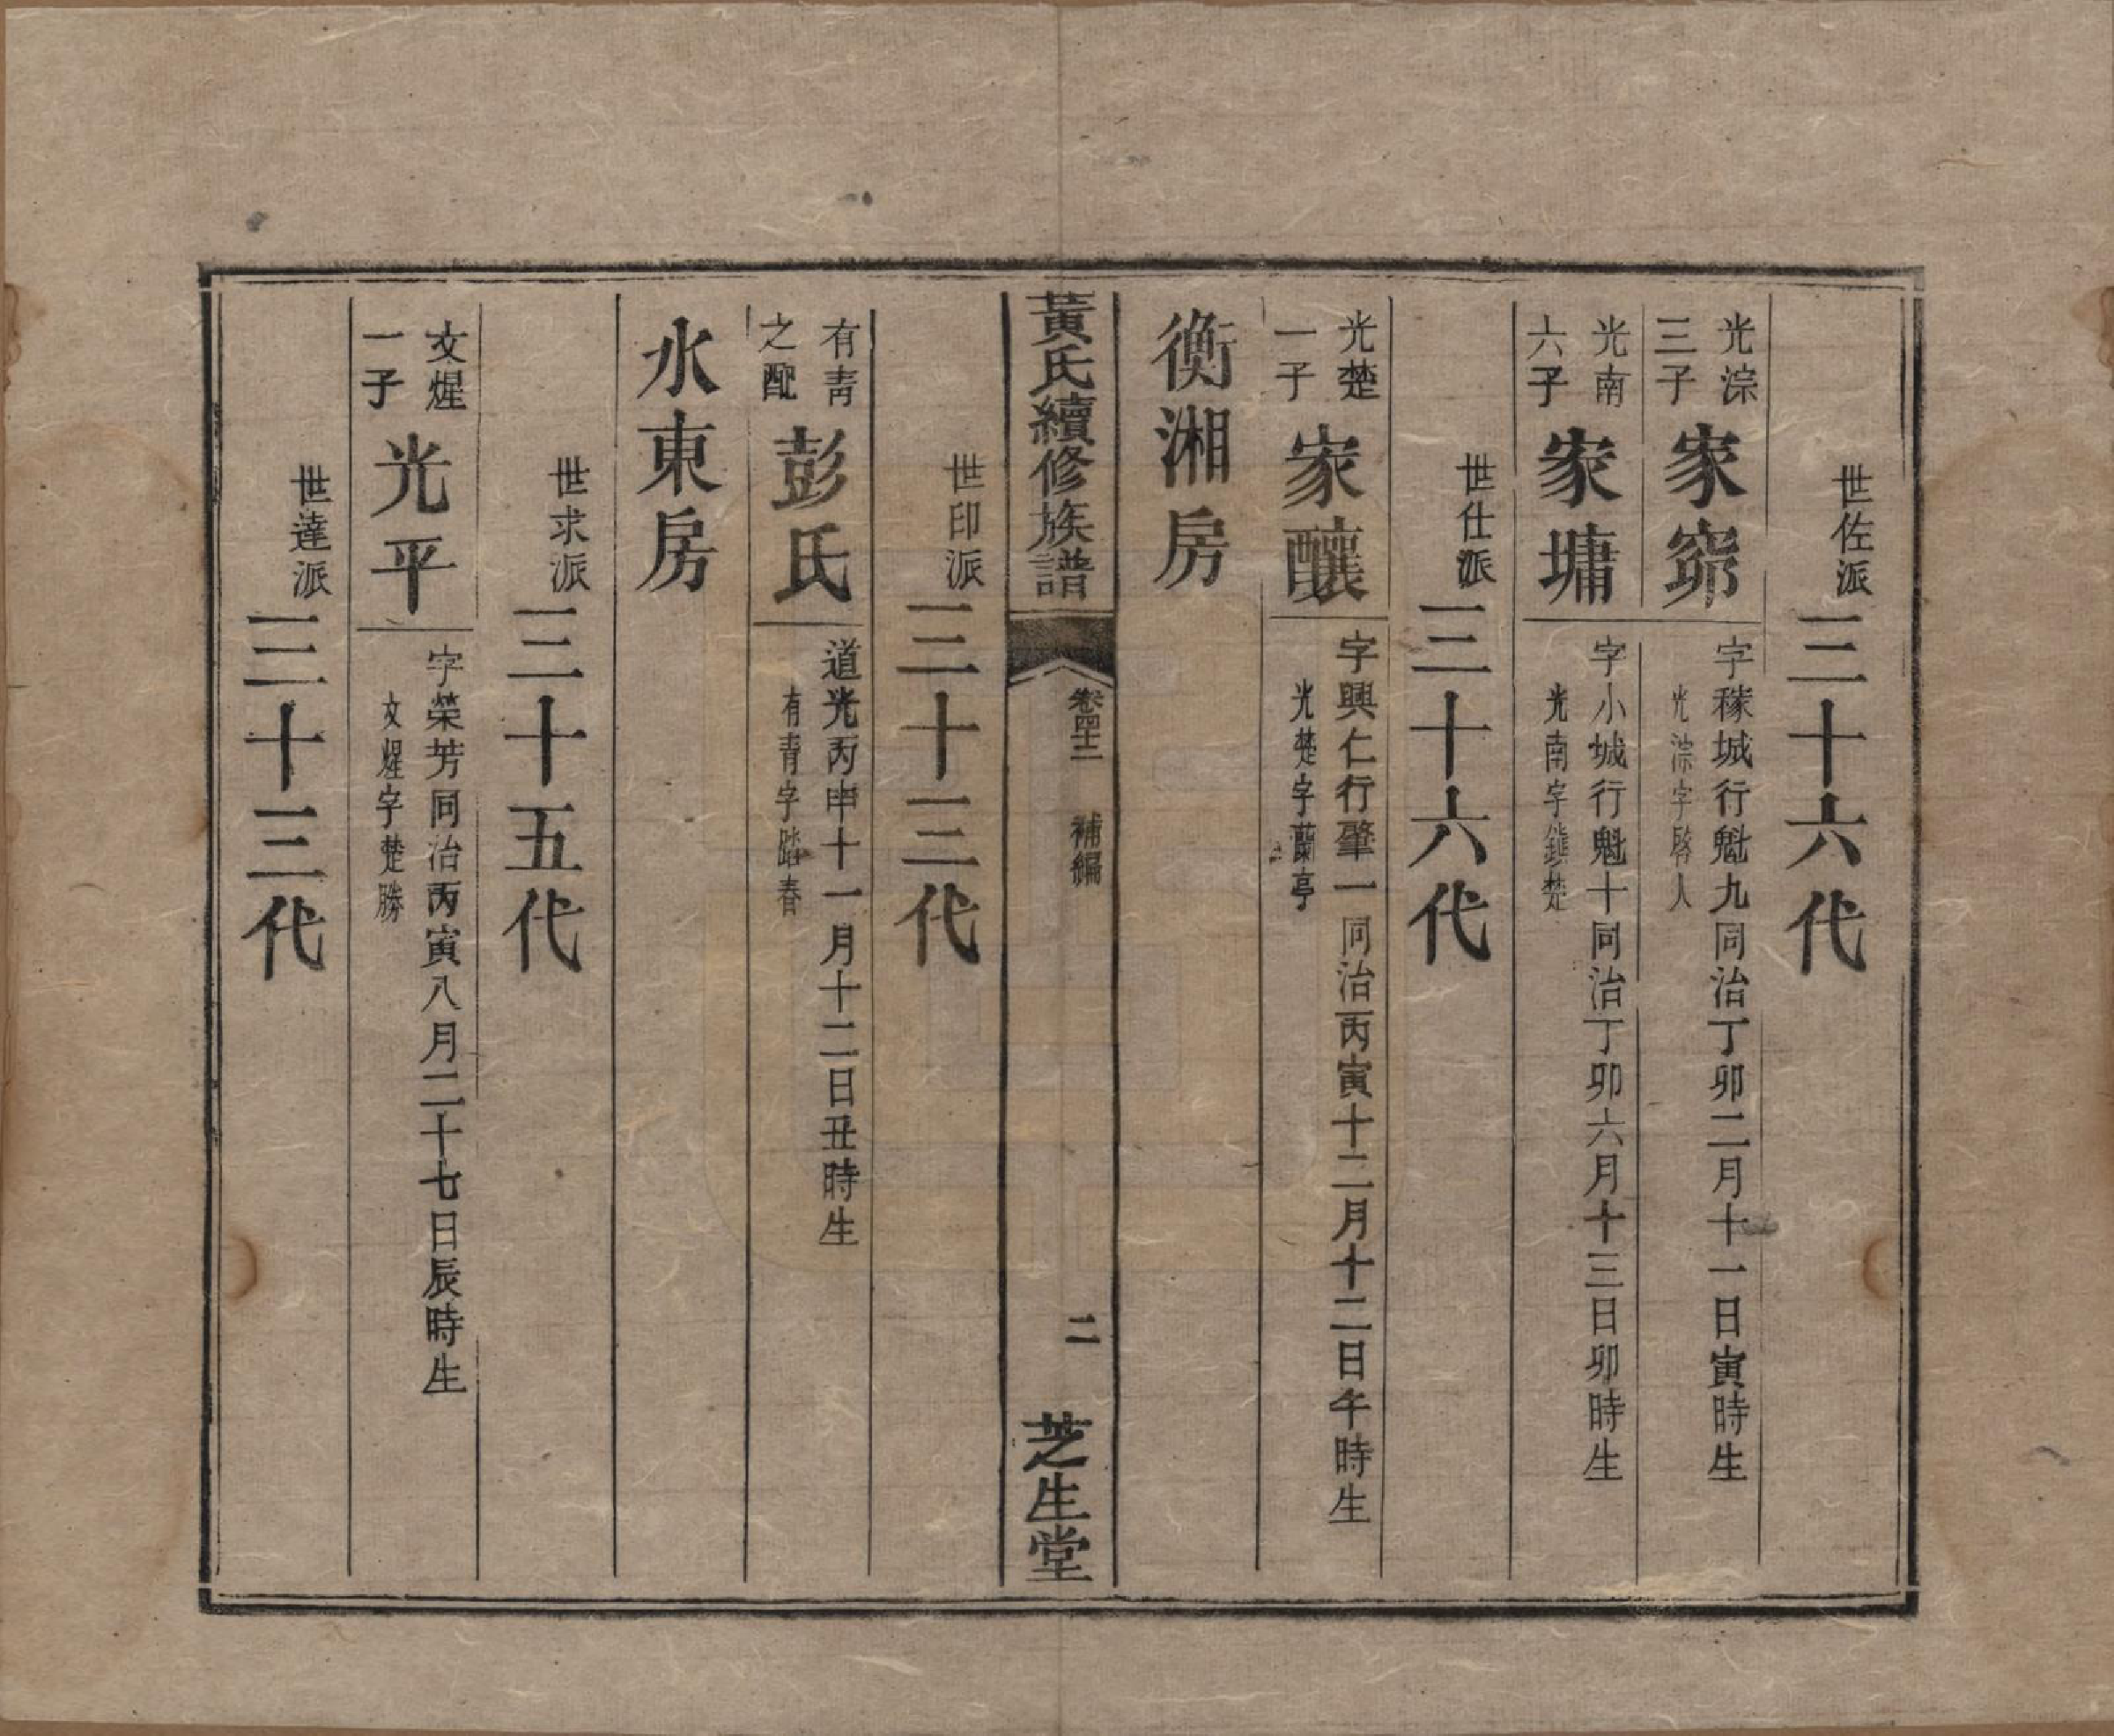 世佐派 三十六代
光淙三子 家窮 字稼城行魁九同治丁卯二月十一日寅時生
光淙字啓人
光南六子 家墉 字小城行魁十同治丁卯六月十三日卯時生
光南字鐵楚
世仕派 三十六代
光楚一子 家釀 字興仁行肇一同治丙寅十二月十二日午時生
光楚字蘭亭
衡湘房
黃氏續修族譜 卷四十二 補編 二 芝生堂
世印派 三十三代
有青之配 彭氏 道光丙申十一月十二日丑時生
有青字踏春
水東房
世求派 三十五代
文煋一子 光平 字榮芳同治丙寅八月二十七日辰時生
文煋字楚勝
世達派 三十三代